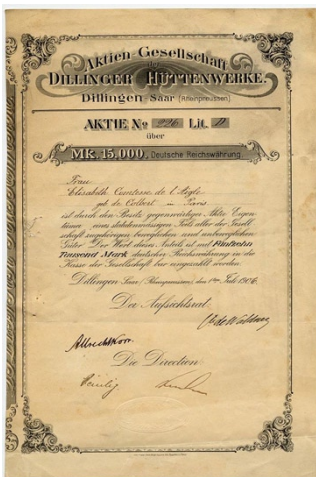 Aktien-Gesellschaft
der
DILLINGER HÜTTENWERKE.
Dillingen-Saar (Rheinpreussen)
AKTIE No 226 Lit. D
über
MK. 15,000, Deutsche Reichswährung
Frau
Elisabeth Comtesse de l'Aigle
geb. de Colbert in Paris
ist durch den Besitz gegenwärtiger Aktie Eigen-
tümer eines statutenmässigen Teils aller der Gesell-
schaft zugehörigen beweglichen und unbeweglichen
Güter. Der Wert dieses Anteils ist mit Fünfzehn
Tausend Mark deutscher Reichswährung in die
Kasse der Gesellschaft bar eingezahlt worden.
Dillingen Saar (Rheinpreussen), den 1ten Juli 1906
Der Aufsichtsrat
Die Direction